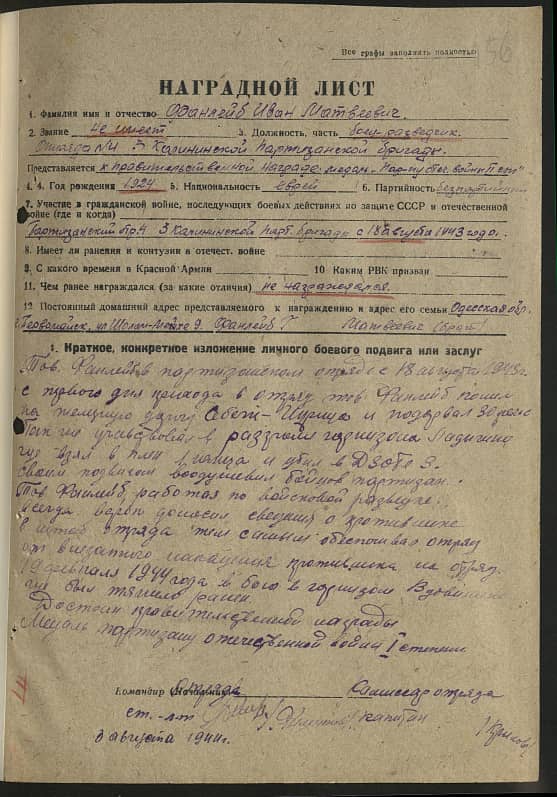 Все графы заполнить полностью
56
НАГРАДНОЙ ЛИСТ
1. Фамилия имя и отчество Фанлейб Иван Матвеевич.
2. Звание не имеет 3. Должность, часть боец-разведчик.
Отряда №4 3 Калининской Партизанской бригады.
Представляется к правительственной награде медаль
4. Год рождения 1924 5. Национальность еврей 6. Партийность беспартийный
7. Участие в гражданской войне, последующих боевых действиях по защите СССР и отечественной
войне (где и когда)
Партизанский отр. 4 3 Калининской Парт. бригады с 18 августа 1943 года.
8. Имеет ли ранения и контузии в отечест. войне
9. С какого времени в Красной Армии 10 Каким РВК призван
11. Чем ранее награждался (за какие отличия) не награждался.
12 Постоянный домашний адрес представляемого к награждению и адрес его семьи Одесская обл.
г. Первомайск, ул 9. Фанлейб Матвеевич (брат)
1. Краткое, конкретное изложение личного боевого подвига или заслуг
Тов. Фанлейб в партизанском отряде с 18 августа 1943г.
с первого дня прихода в отряд тов Фанлейб ходил
на железную дорогу и подорвал 30 рельс
Так же участвовал в разгроме гарнизона
где взял в плен и убил в ДЗОТе 3.
своим подвигом воодушевил бойцов партизан.
Тов Фанлейб работая по войсковой разведке
всегда верно доносил сведения о противнике
в штаб отряда тем самым обеспечивал отряд
от внезапного нападения противника на отряд.
19 февраля 1944 года в бою в гарнизон
где был тяжело ранен.
Достоин правительственной награды
Медаль партизану отечественной войны I степени
Командир (Начальник) отряда Комиссар отряда
ст. л-нт капитан
8 августа 1944г.